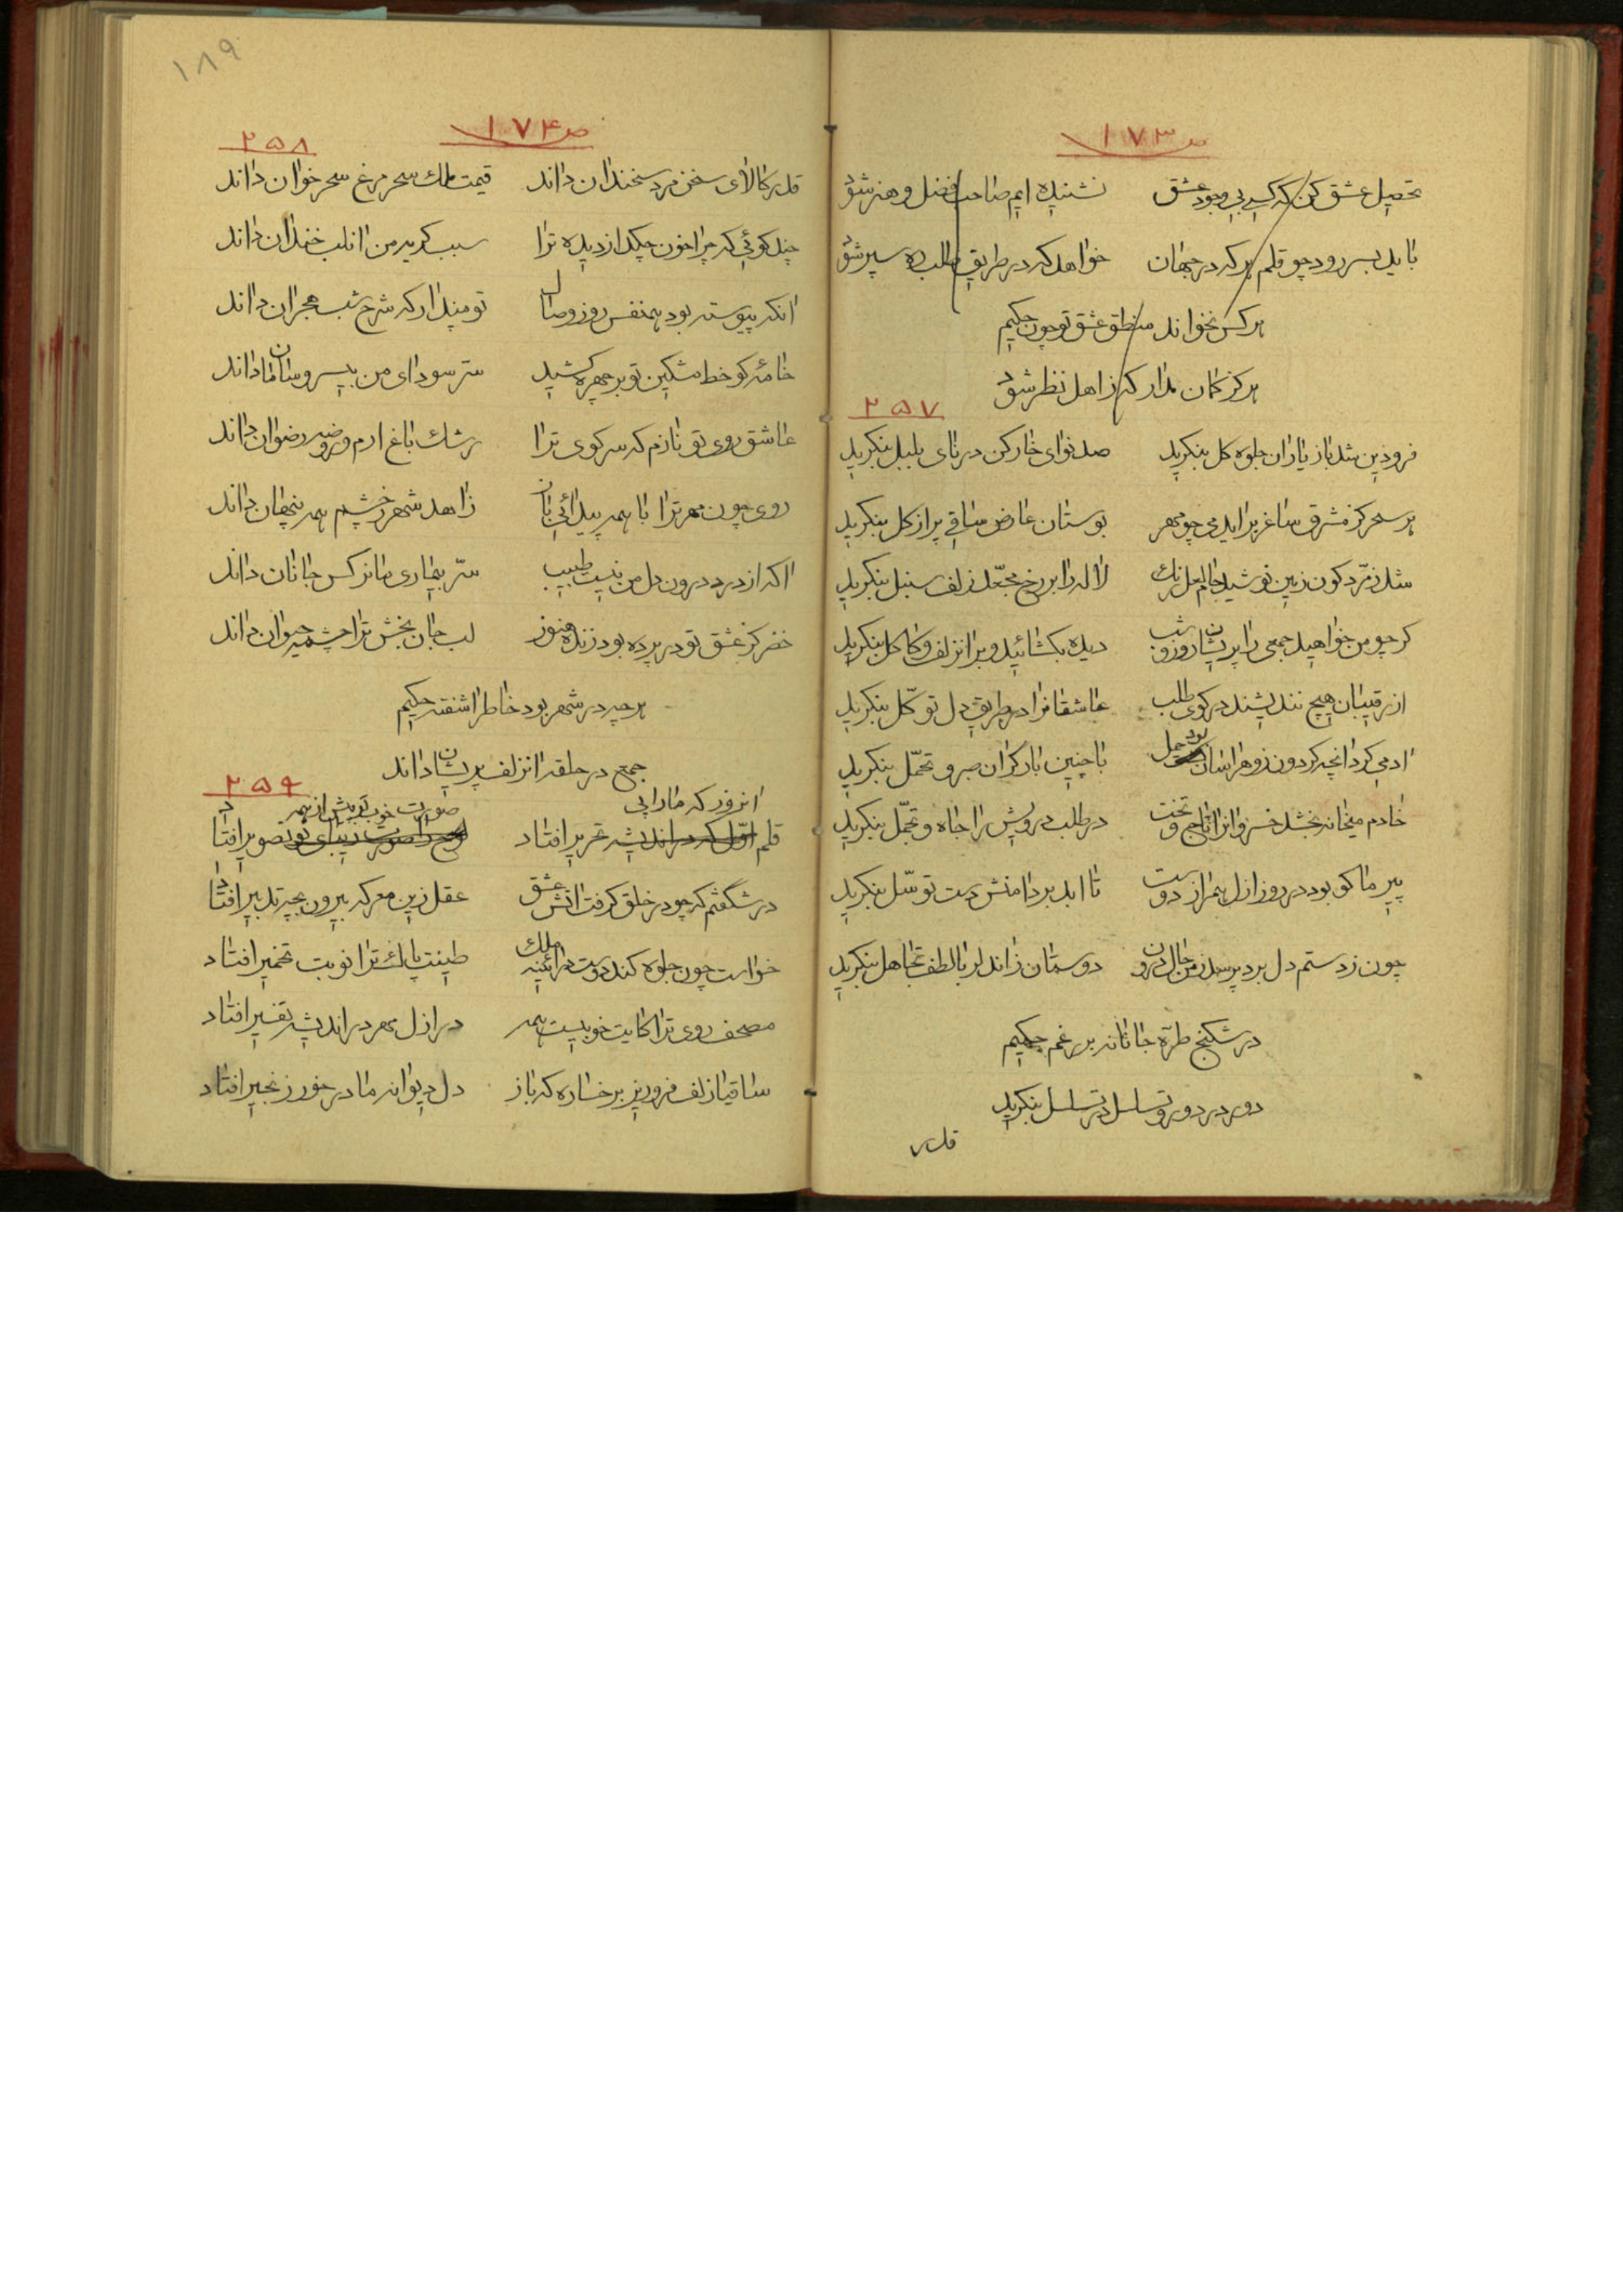 ص ۱۷۳
تحصیل عشق کن که کسی بی وجود عشق نشنیده ایم صاحب فضل و هنر شود
باید بسر رود چو قلم هر که در جهان خواهد که در طریق طلب ره سپر شود
هر کس نخواند منطق عشق تو چون حکیم
هرگز گمان مدار که زاهل نظر شود
۲۵۷
فرودین شد باز یاران جلوه کل بنکرید صد نوای خارکن در نای بلبل بنکرید
هر سحر کز مشرق ساغر براید می چو مهر بوستان عارض ساقی پر از کل بنکرید
شد زمرّد کون زمین نوشید جام لعل رنک لاله را بر رخ مجعّد زلف سنبل بنکرید
کر چو من خواهید جمعی را پریشان روز و شب دیده بکشائید و بر ان زلف و کاکل بنکرید
از رقیبان هیچ نندیشند در کوی طلب عاشقانرا در طریق دل توکّل بنکرید
ادمی کرد انچه کردون زو هراسان بود حمل با چنین بار کران صبر و تحمّل بنکرید
خادم میخانه بخشد خسروانرا تاج و تخت در طلب درویش را جاه و تجمّل بنکرید
پیر ما کو بود در روز ازل همراز دوست تا ابد بر دامنش دست توسّل بنکرید
چون ز دستم دل برد پرسد ز من حال درون دوستان زان دلربا لطف تجاهل بنکرید
در شکنج طرّه جانانه بر رغم حکیم
دور در دور و تسلسل در تسلسل بنکرید
قدر
۱۸۹
ص ۱۷۴
۲۵۸
قدر کالای سخن مرد سخندان داند قیمت ملک سحر مرغ سحر خوان داند
چند کوئی که چرا خون چکد از دیده ترا سبب کریه من ان لب خندان داند
انکه پیوسته بود همنفس روز وصال تو مپندار که شرح شب هجران داند
خامهٔ کو خط مشکین تو بر چهره کشید سرّ سودای من بیسر و سامان داند
عاشق روی تو نازم که سر کوی ترا رشک باغ ارم و روضه رضوان داند
روی چون مهر ترا با همه پیدائی ان زاهد شهر ز چشم همه پنهان داند
اکه از درد درون دل من نیست طبیب سرّ بیماری ما نرکس جانان داند
خضر کز عشق تو در پرده بود زنده هنوز لب جان بخش ترا چشمه حیوان داند
هر چه در شهر بود خاطر اشفته حکیم
جمع در حلقه ان زلف پریشان داند
۲۵۹
انروز که ما را پی صورت خوب تو پیش از همه
قلم اوّل که در اندیشه تحریر افتاد تصویر افتاد
در شکفتم که چو در خلق کرفت اتش عشق عقل زین معرکه بیرون بچه تدبیر افتاد
خواست چون جلوه کند دوست در ائینه ملک طینت پاک ترا نوبت تخمیر افتاد
مصحف روی ترا کایت خوبیست همه در ازل مهر در اندیشه تفسیر افتاد
ساقیا زلف فرو ریز بر خساره که باز دل دیوانه ما در خور زنجیر افتاد